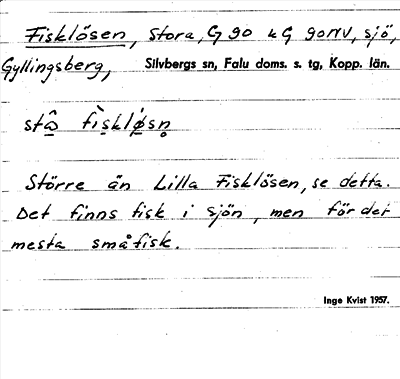 Fisklösen, Stora, G 90 & G 90NV, sjö,
Gyllingsberg, Silvbergs sn, Falu doms. s. tg, Kopp. län.
Större än Lilla Fisklösen, se detta.
Det finns fisk i sjön, men för det
mesta småfisk.
Inge Kvist 1957.